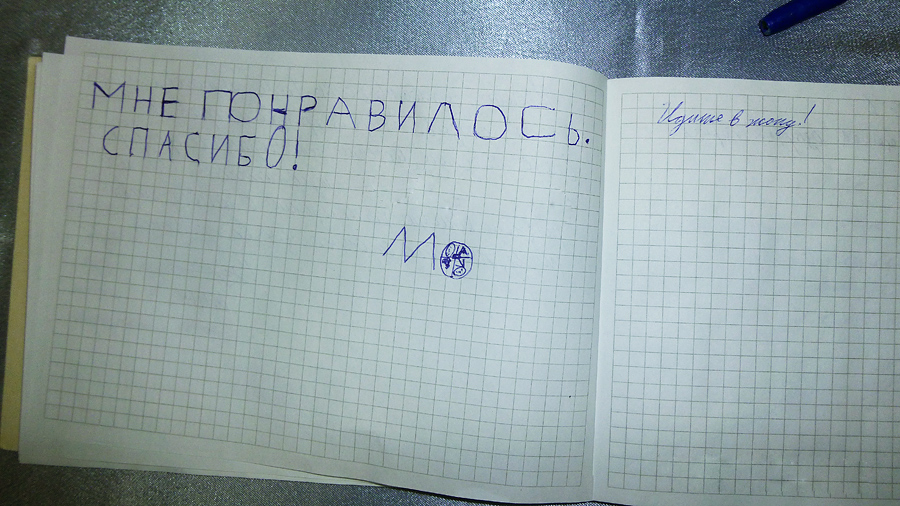 МНЕ ПОНРАВИЛОСЬ.
СПАСИБО!
М
Идите в жопу!